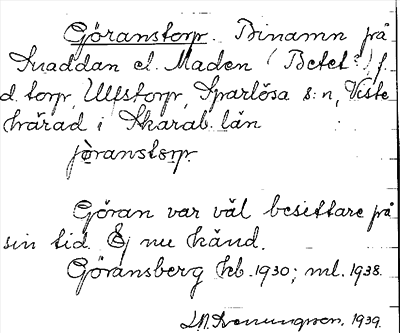 Göranstorp. Binamn på
Snaddan el. Maden (Betet?) f.
d. torp, Ulfstorp, Sparlösa s:n, Viste
härad i Skarab. län
jöranstorp.
Göran var väl besittare på
sin tid. Ej nu känd.
Göransberg hb. 1930; ml. 1938.
1939.